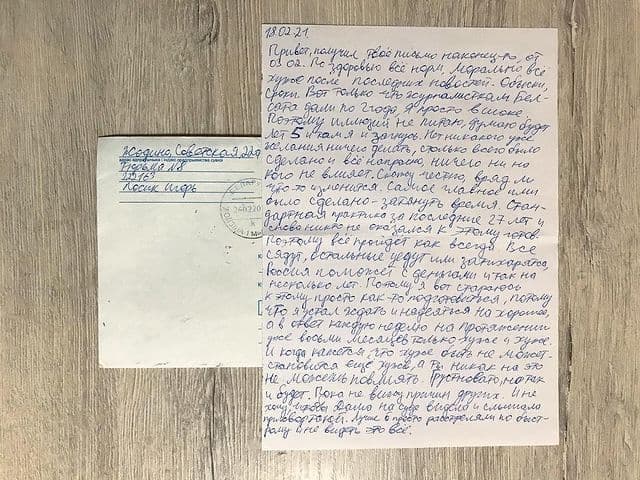 Жодино, Советская, 22а
Тюрьма №8
222163
Лосик Игорь
18.02.21.
Привет, получил твоё письмо наконец-то, от
02. По здоровью всё норм, морально всё
хуже после последних новостей. Обыски,
сроки. Вот только что журналисткам Бел-
сата дали по 2 года я просто в шоке.
Поэтому иллюзий не питаю, думаю будет
лет 5 и каля и запись. Нет никакого уже
желания ничего делать, столько всего было
сделано и всё напрасно, ничего ни на
кого не влияет. Скажу честно, вряд ли
что-то изменится. Самое главное ими
было сделано - затянуть время. Стан-
дартная практика за последние 27 лет и
снова никто не оказался к этому готов.
Поэтому всё пройдёт как всегда. Все
сядут, остальные уедут или затихарятся,
Россия поможет с деньгами и так на
несколько лет. Потому я вот стараюсь
к этому просто как-то подготовиться, потому
что я устал ждать и надеяться на хорошее,
а в ответ каждую неделю на протяжении
уже восьми месяцев только хуже и хуже.
И когда кажется, что хуже быть не может -
становится ещё хуже, а ты никак на это
не можешь повлиять. Грустновато, но так
и будет. Пока не вижу причин других. И не
хочу, чтобы Даша на суде видела и слышала
приговор такой. Лучше б просто расстреляли по быст-
рому и не видеть это всё.